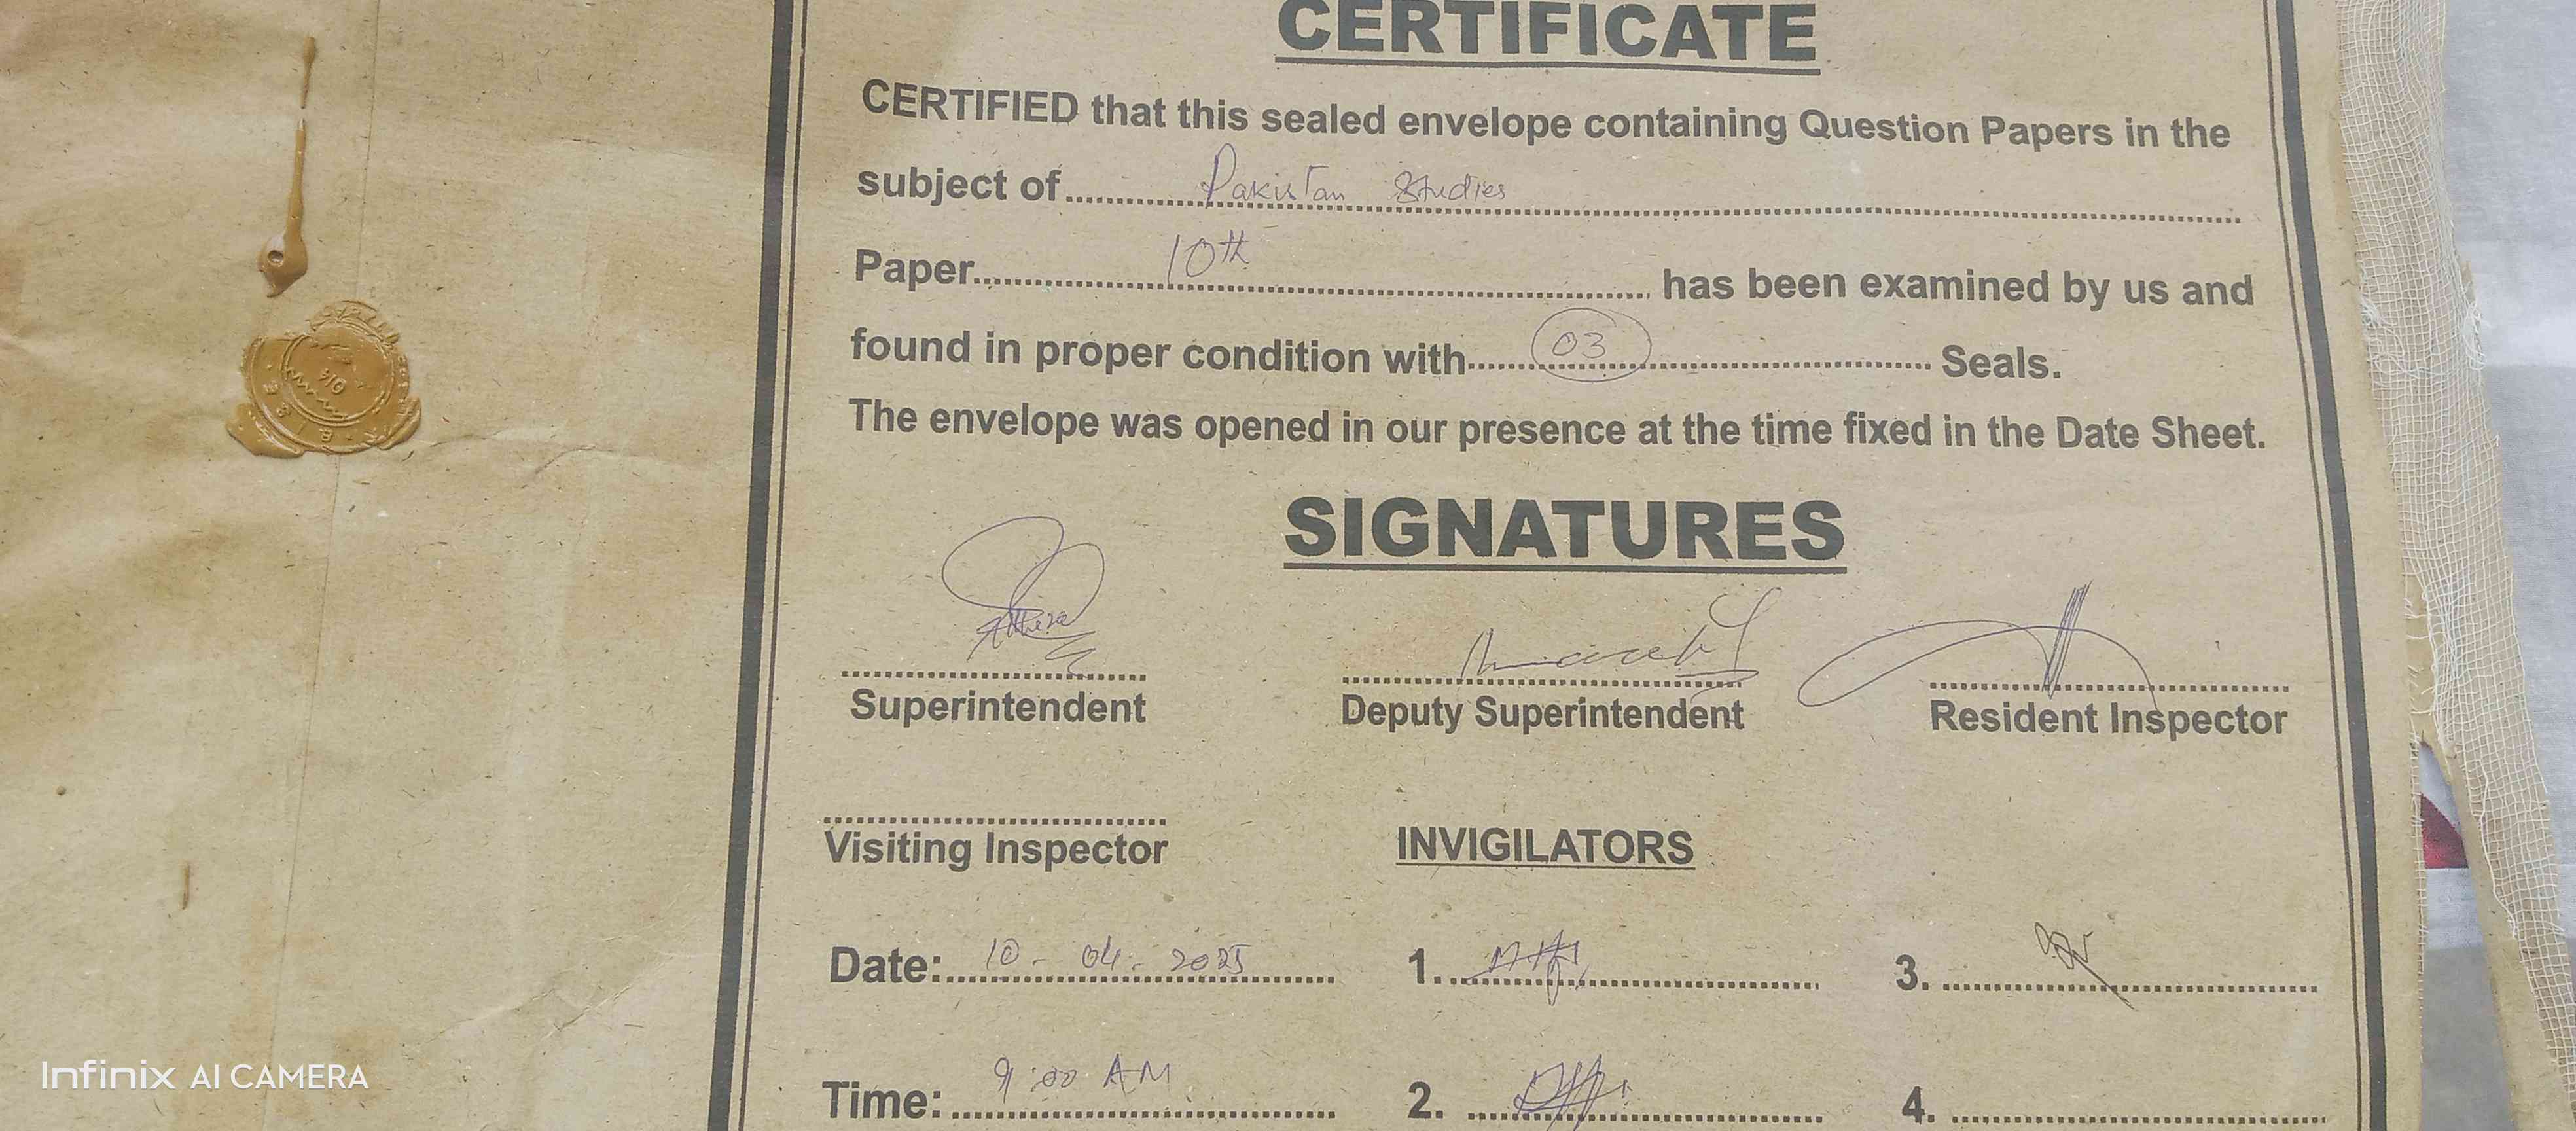 CERTIFICATE
CERTIFIED that this sealed envelope containing Question Papers in the
subject of Pakistan Studies
Paper 10th has been examined by us and
found in proper condition with 03 Seals.
The envelope was opened in our presence at the time fixed in the Date Sheet.
SIGNATURES
Superintendent Deputy Superintendent Resident Inspector
Visiting Inspector INVIGILATORS
Date: 10-04-2025 1. 3.
Time: 9:00 AM 2. 4.
Infinix AI CAMERA